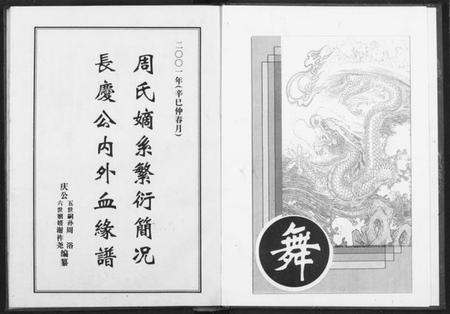 二〇〇一年(辛巳仲春月)
周氏嫡系繁衍簡况
長慶公内外血緣譜
庆公
五世嗣孙周浴
六世姻婿谢祚尧
编纂
舞